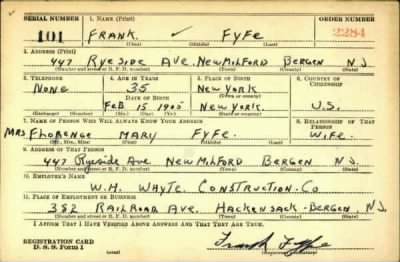 SERIAL NUMBER 1. NAME (Print) ORDER NUMBER
101 FRANK ✓ FYFE 2284
(First) (Middle) (Last)
2. ADDRESS (Print)
447 RYESIDE AVE. NEW MILFORD BERGEN N.J.
(Number and street or R. F. D. number) (Town) (County) (State)
3. TELEPHONE 4. AGE IN YEARS 5. PLACE OF BIRTH 6. COUNTRY OF CITIZENSHIP
NONE 35 NEW YORK
DATE OF BIRTH (Town or county)
FEB 15 1905 NEW YORK. U.S.
(Exchange) (Number) (Mo.) (Day) (Yr.) (State or country)
7. NAME OF PERSON WHO WILL ALWAYS KNOW YOUR ADDRESS 8. RELATIONSHIP OF THAT PERSON
MRS FLORENCE MARY FYFE. WIFE.
(Mr., Mrs., Miss) (First) (Middle) (Last)
9. ADDRESS OF THAT PERSON
447 Ryeside Ave NEW MILFORD BERGEN N.J.
(Number and street or R. F. D. number) (Town) (County) (State)
10. EMPLOYER'S NAME
W.H. WHYTE. CONSTRUCTION. CO
11. PLACE OF EMPLOYMENT OR BUSINESS
382 RAILROAD AVE. HACKENSACK - BERGEN, N.J.
(Number and street or R. F. D. number) (Town) (County) (State)
I AFFIRM THAT I HAVE VERIFIED ABOVE ANSWERS AND THAT THEY ARE TRUE.
REGISTRATION CARD
D. S. S. Form 1 Frank Fyfe